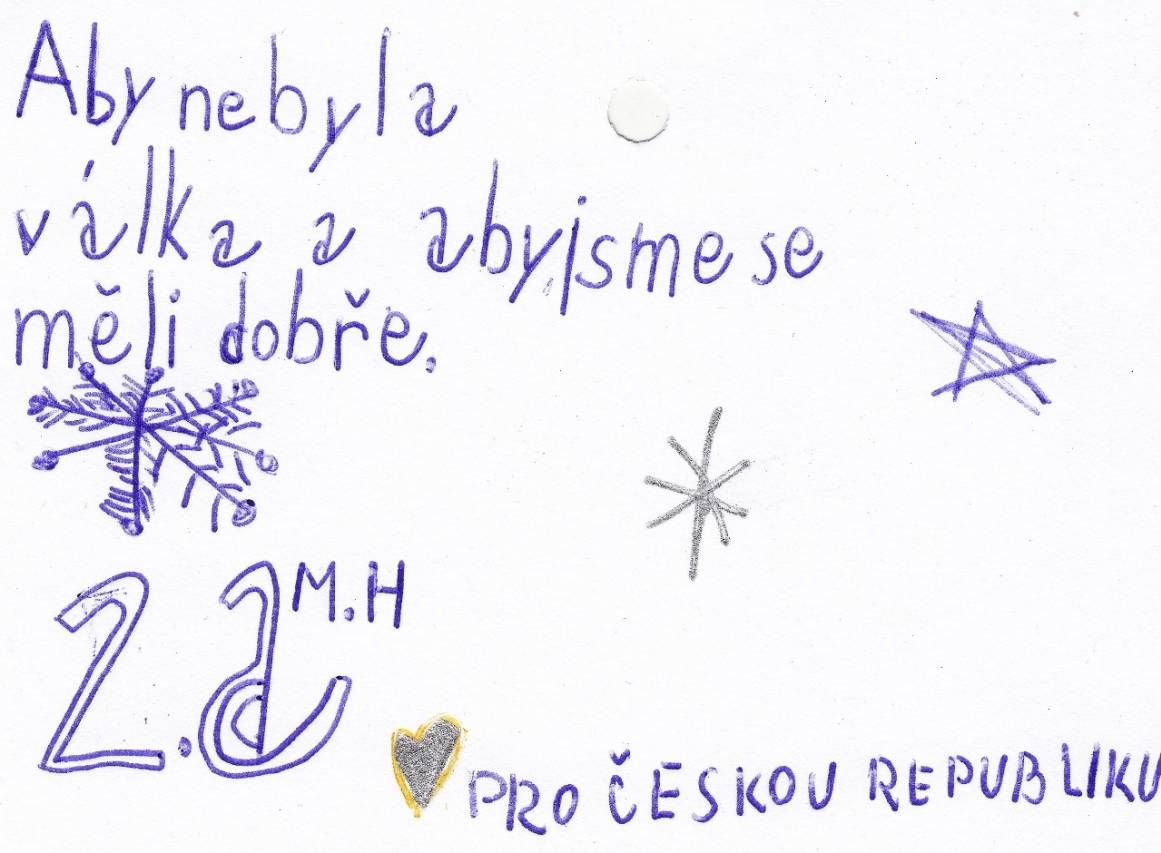 Aby nebyla
válka a abyjsme se
měli dobře.
2.a M.H
PRO ČESKOU REPUBLIKU